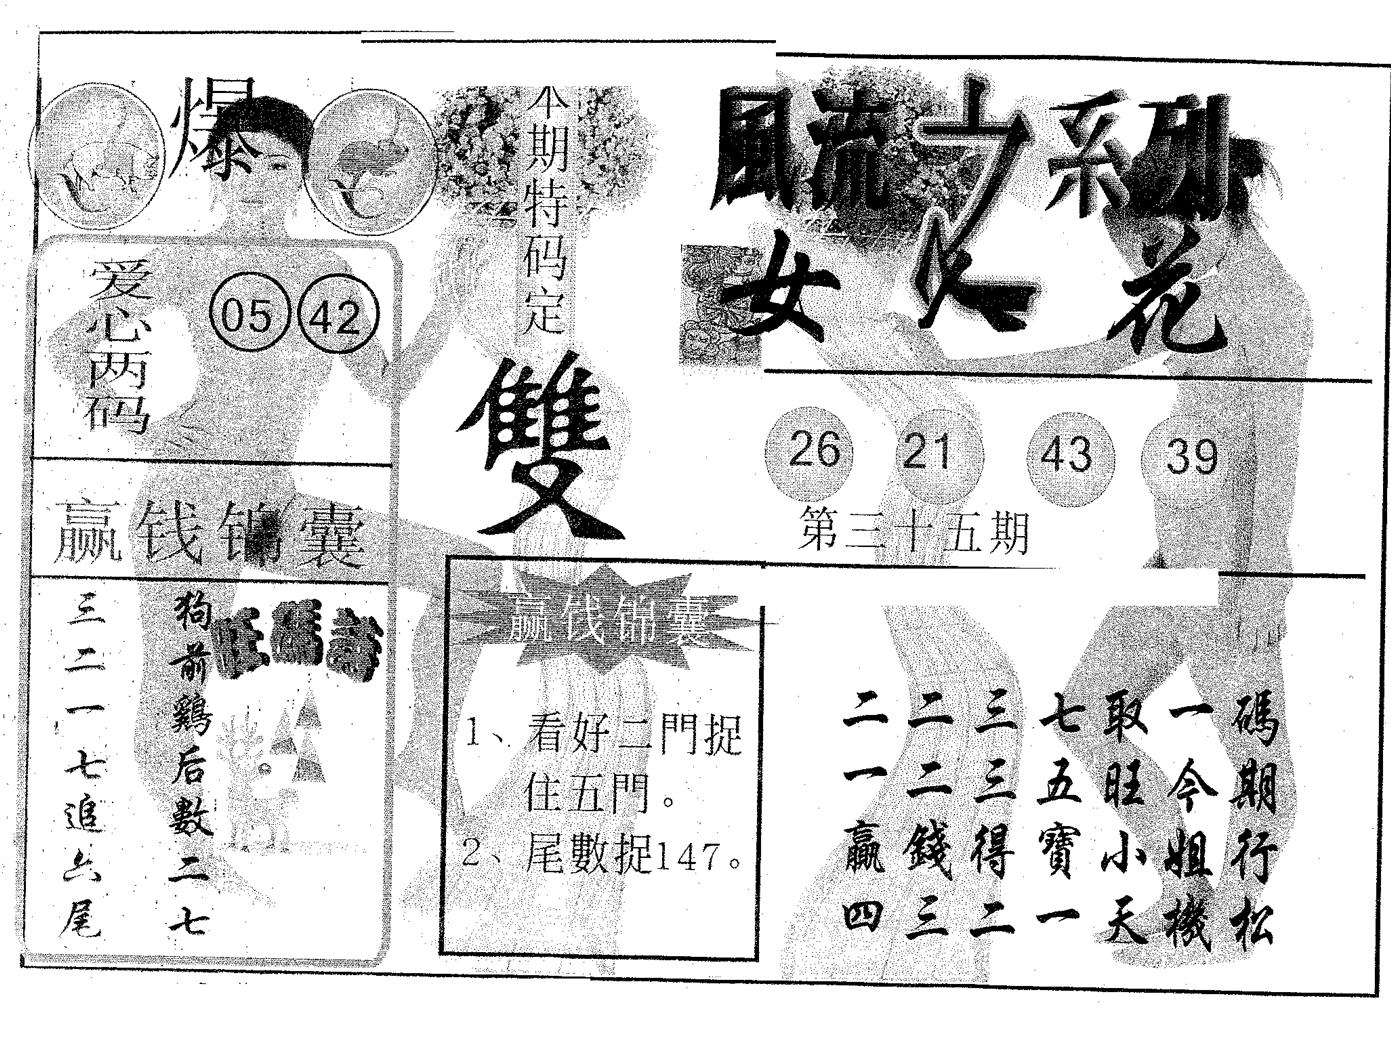 爆
爱心两码
05 42
赢钱锦囊
狗前鷄后數二七
三二一七追六尾
旺碼詩
本期特码定
雙
赢钱锦囊
1、看好二門捉
住五門。
2、尾數捉147。
風流之系列
女人花
26 21 43 39
第三十五期
碼期行松
一今姐機
取旺小天
七五寶一
三三得二
二二錢三
二一贏四